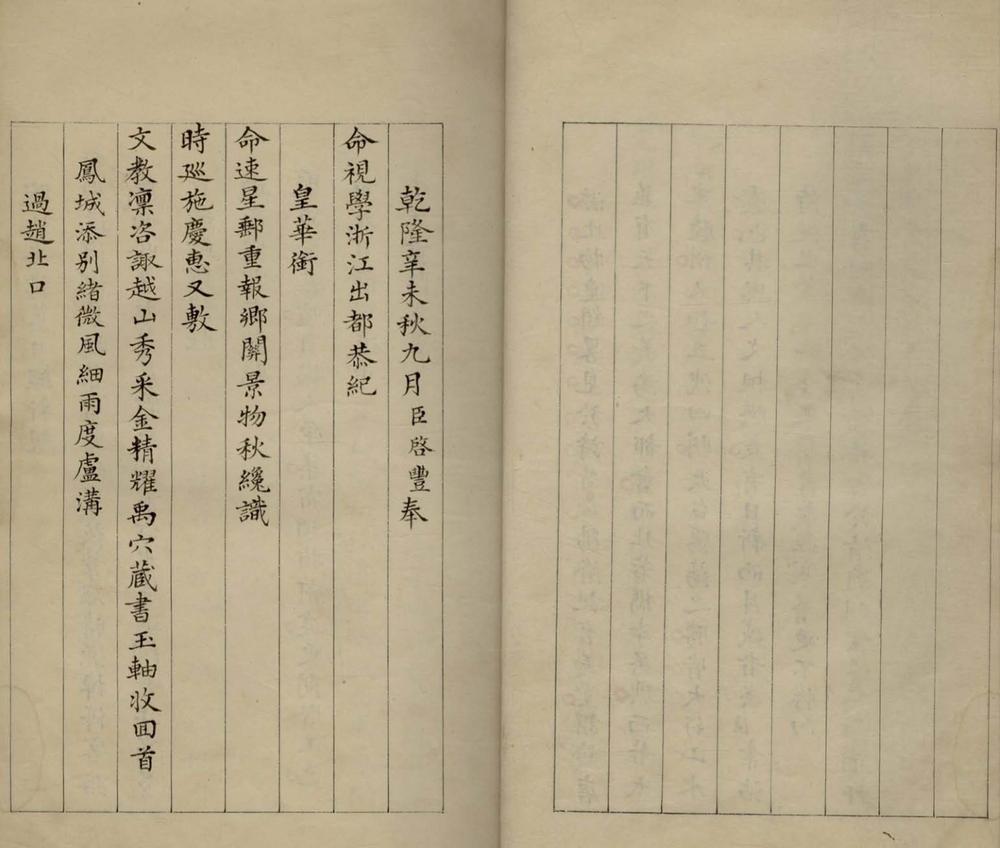 乾隆辛未秋九月臣啓豐奉
命視學浙江出都恭紀
皇華銜
命速星郵重報鄉關景物秋纔識
時巡施慶惠又敷
文教凛咨諏越山秀采金精耀禹穴藏書玉軸收回首
鳳城添別緒微風細雨度盧溝
過趙北口